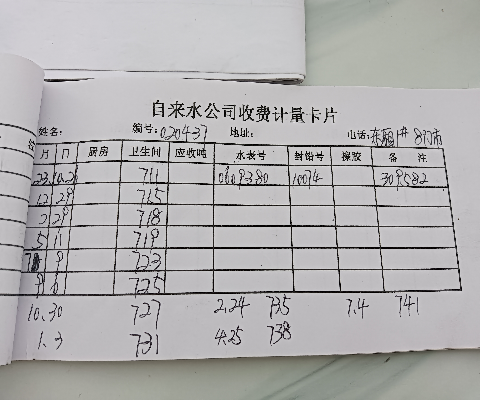 自来水公司收费计量卡片
姓名: 编号:020437 地址: 电话:
月 日 厨房 卫生间 应收吨 水表号 封铅号 橡胶 备 注
711 0609380 10074 309582
12 29 715
2 29 718
5 11 719
7 9 723
9 6 725
10.30 727 2.24 735 7.4 741
1.3 731 4.25 738